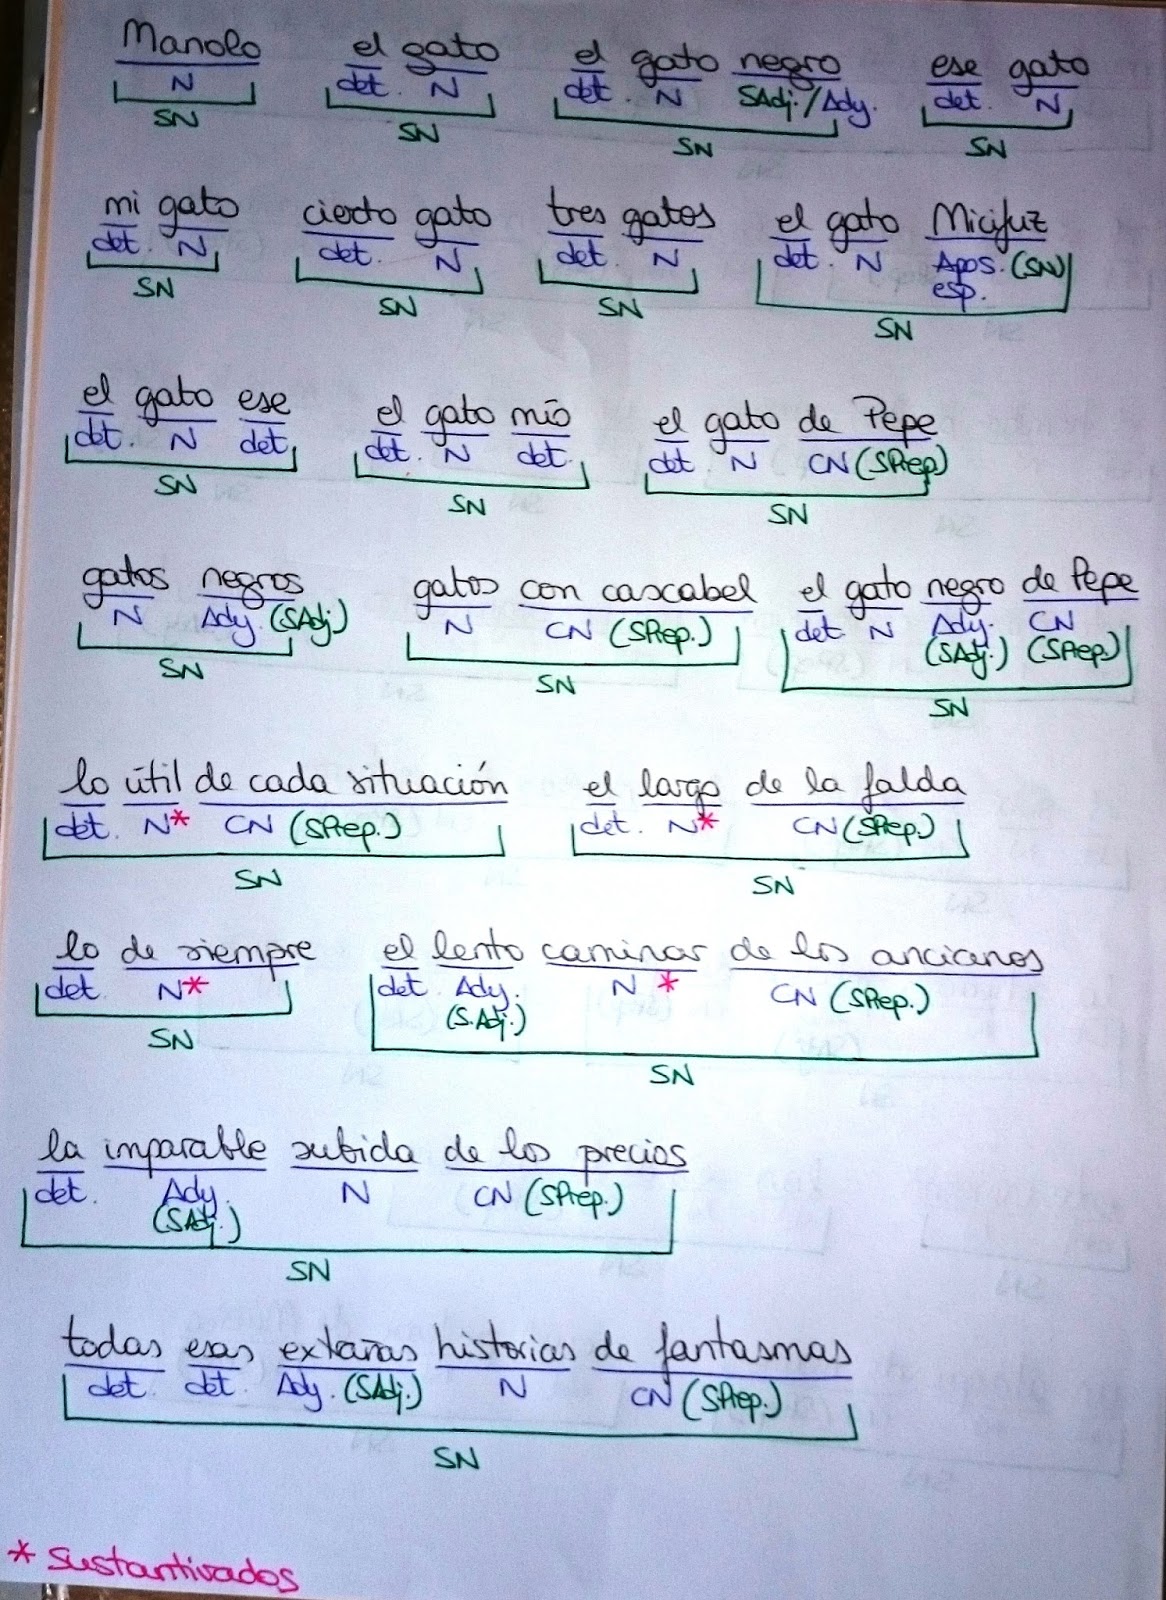 Manolo el gato el gato negro ese gato
N det. N det. N SAdj./Ady. det. N
SN SN SN SN
mi gato cierto gato tres gatos el gato Micifuz
det. N det. N det. N det. N Apos. (SN)
esp.
SN SN SN SN
el gato ese el gato mío el gato de Pepe
det. N det. det. N det. det N CN (SPrep)
SN SN SN
gatos negros gatos con cascabel el gato negro de Pepe
N Ady. (SAdj) N CN (SPrep.) det. N Ady. CN
(SAdj.) (SPrep.)
SN SN SN
lo útil de cada situación el largo de la falda
det. N* CN (SPrep.) det. N* CN (SPrep.)
SN SN
lo de siempre el lento caminar de los ancianos
det. N* det. Ady. N * CN (SPrep.)
(S.Adj.)
SN SN
la imparable subida de los precios
det. Ady. N CN (SPrep.)
(SAdj.)
SN
todas esas extrañas historias de fantasmas
det. det. Ady. (SAdj.) N CN (SPrep.)
SN
* sustantivados